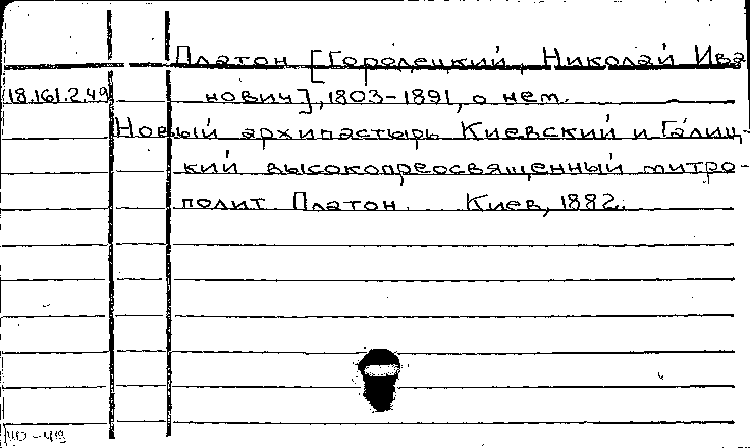 Платон [Городецкий, Николай Ива
18.161.2.49 нович], 1803-1891, о нем.
Новый архипастырь Киевский и Галиц-
кий высокопреосвященный митро-
полит Платон. Киев, 1882.